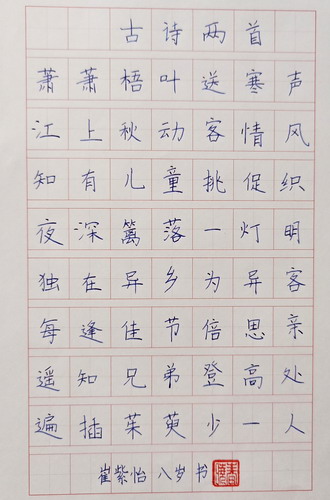 古诗两首
萧萧梧叶送寒声
江上秋动客情风
知有儿童挑促织
夜深篱落一灯明
独在异乡为异客
每逢佳节倍思亲
遥知兄弟登高处
遍插茱萸少一人
崔紫怡 八岁 书